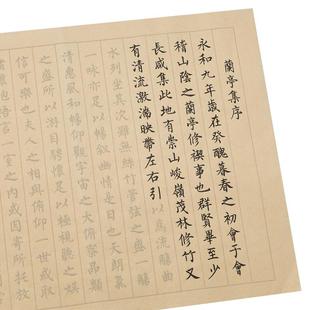 蘭亭集序
永和九年歲在癸醜暮春之初會于會
稽山陰之蘭亭修禊事也群賢畢至少
長咸集此地有崇山峻嶺茂林修竹又
有清流激湍映帶左右引以為流觴曲
水列坐其次雖無絲竹管弦之盛一觴
一詠亦足以暢敘幽情是日也天朗氣
清惠風和暢仰觀宇宙之大俯察品類
之盛所以遊目騁懷足以極視聽之娛
信可樂也夫人之相與俯仰一世或取
懷抱悟言一室之內或因寄所托放